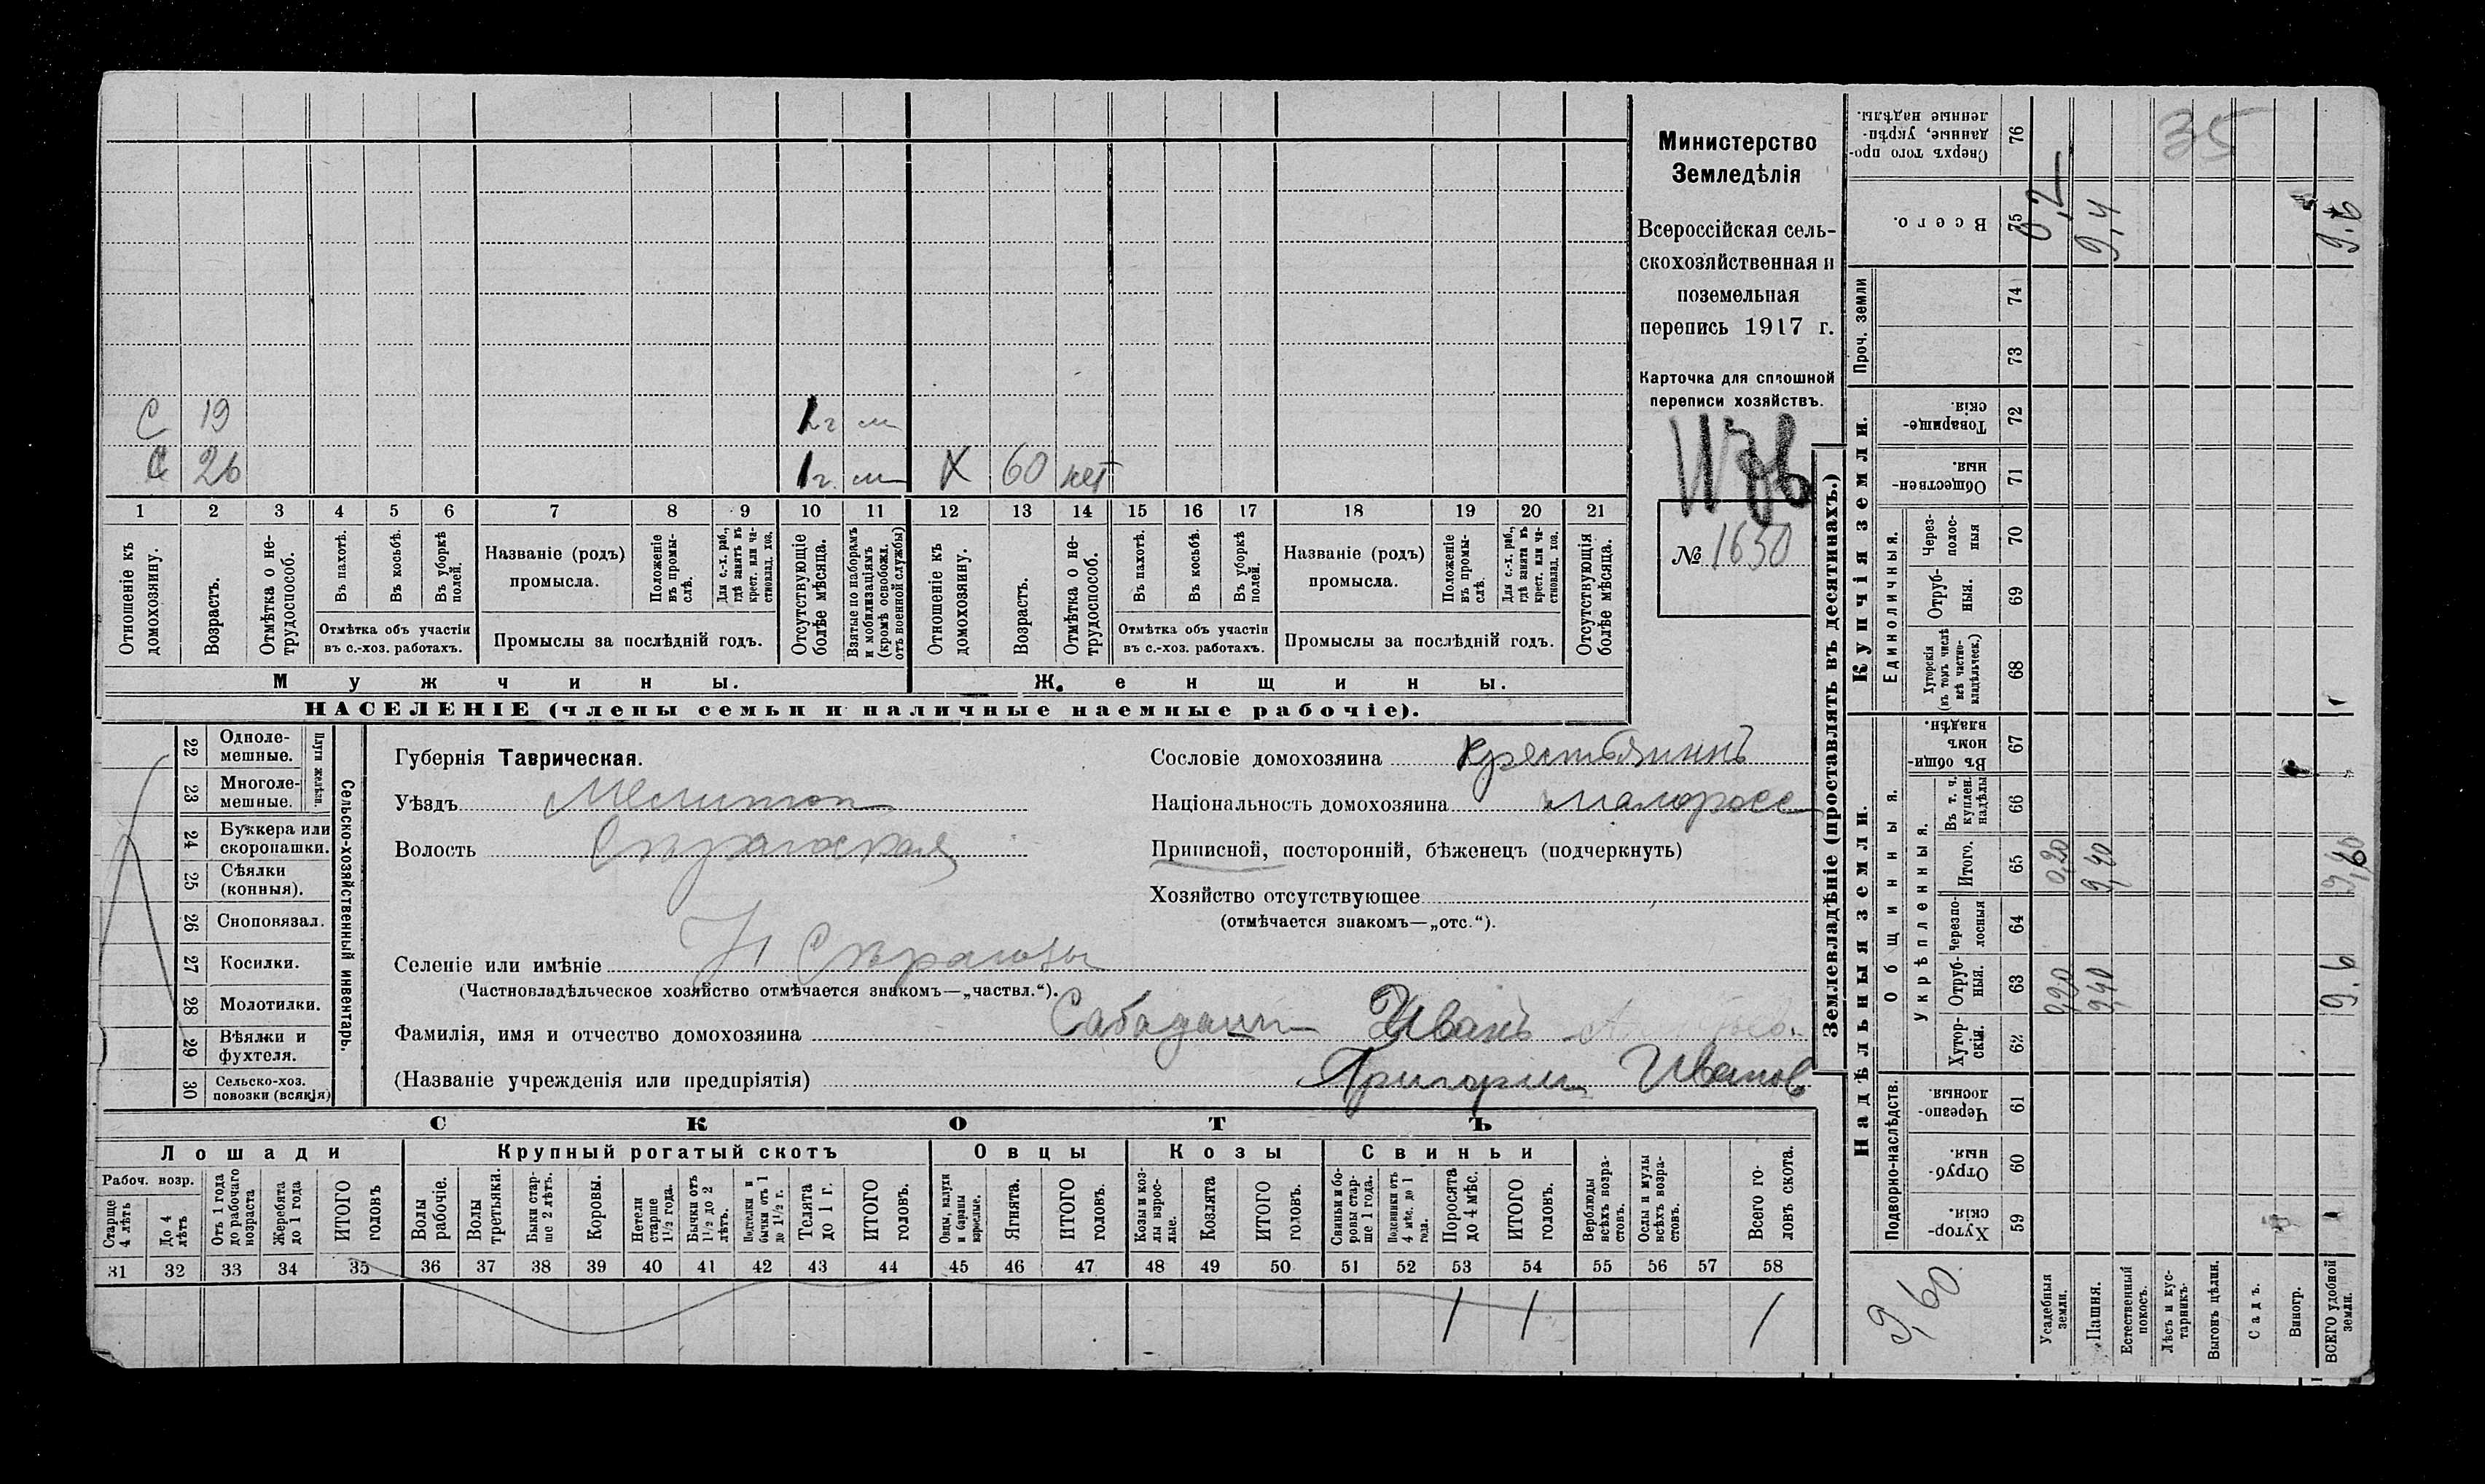 С 19 2 г м
С 26 1 г. м Х 60 нет
1 2 3 4 5 6 7 8 9 10 11 12 13 14 15 16 17 18 19 20 21
Отношеніе къ домохозяину.
Возрастъ.
Отмѣтка о не-
трудоспособ.
Въ пахотѣ.
Въ косьбѣ.
Въ уборкѣ полей.
Отмѣтка объ участіи
въ с.-хоз. работахъ.
Названіе (родъ)
промысла.
Положеніе
въ промы-
слѣ.
Для с.-х. раб.,
гдѣ занятъ въ
крест. или ча-
стновлад. хоз.
Промыслы за послѣдній годъ.
Отсутствующіе
болѣе мѣсяца.
Взятые по наборамъ
и мобилизаціямъ
(кромѣ освобожд.
отъ военной службы)
Отношеніе къ
домохозяину.
Возрастъ.
Отмѣтка о не-
трудоспособ.
Въ пахотѣ.
Въ косьбѣ.
Въ уборкѣ
полей.
Отмѣтка объ участіи
въ с.-хоз. работахъ.
Названіе (родъ)
промысла.
Положеніе
въ промы-
слѣ.
Для с.-х. раб.,
гдѣ занята въ
крест. или ча-
стновлад. хоз.
Промыслы за послѣдній годъ.
Отсутствующія
болѣе мѣсяца.
Мужчины.
Женщины.
НАСЕЛЕНІЕ (члены семьи и наличные наемные рабочіе).
Министерство
Земледѣлія
Всероссійская сель-
скохозяйственная и
поземельная
перепись 1917 г.
Карточка для сплошной
переписи хозяйствъ.
№ 1650
22 Одноле-
мешные.
23 Многоле-
мешные.
Плуги желѣзн.
24 Буккера или
скоропашки.
25 Сѣялки
(конныя).
26 Сноповязал.
27 Косилки.
28 Молотилки.
29 Вѣялки и
фухтеля.
30 Сельско-хоз.
повозки (всякія)
Сельско-хозяйственный инвентарь.
Губернія Таврическая.
Уѣздъ Мелитоп
Волость
Селеніе или имѣніе Н Сѣрагозы
(Частновладѣльческое хозяйство отмѣчается знакомъ—„частвл.“).
Сословіе домохозяина крестьянинъ
Національность домохозяина малоросс
Приписной, посторонній, бѣженецъ (подчеркнуть)
Хозяйство отсутствующее
(отмѣчается знакомъ—„отс.“).
Фамилія, имя и отчество домохозяина Сабадаш Иванъ
(Названіе учрежденія или предпріятія) Григорий Иванов
СКОТЪ
Лошади
Крупный рогатый скотъ
Овцы
Козы
Свиньи
Рабоч. возр.
Старше
4 лѣтъ
До 4
лѣтъ
Отъ 1 года
до рабочаго
возраста
Жеребята
до 1 года
ИТОГО
головъ
Волы
рабочіе.
Волы
третьяки.
Быки стар-
ше 2 лѣтъ.
Коровы.
Нетели
старше
1½ года.
Бычки отъ
1½ до 2
лѣтъ.
Подтелки и
бычки отъ 1
до 1½ г.
Телята
до 1 г.
ИТОГО
головъ.
Овцы, валухи
и бараны
взрослые.
Ягнята.
ИТОГО
головъ.
Козы и коз-
лы взрос-
лые.
Козлята
ИТОГО
головъ.
Свиньи и бо-
ровы стар-
ше 1 года.
Подсвинки отъ
4 мѣс. до 1
года.
Поросята
до 4 мѣс.
ИТОГО
головъ.
Верблюды
всѣхъ возра-
стовъ.
Ослы и мулы
всѣхъ возра-
стовъ.
Всего го-
ловъ скота.
31 32 33 34 35 36 37 38 39 40 41 42 43 44 45 46 47 48 49 50 51 52 53 54 55 56 57 58
1 1 1
Землевладѣніе (проставлять въ десятинахъ.)
Надѣльныя земли.
Купчія земли.
Проч. земли
Подворно-наслѣдств.
Общинныя.
Укрѣпленныя.
Единоличныя.
Сверхъ того про-
данные, укрѣп-
ленные надѣлы.
76
35
Всего.
75
0,2
9,4
9.6
74
73
Товарище-
скія.
72
Обществен-
ныя.
71
Через-
полос-
ныя
70
Отруб-
ныя.
69
Хуторскія
(въ томъ числѣ
всѣ частно-
владѣльческ.)
68
Въ общин-
номъ
владѣн.
67
Въ т. ч.
куплен.
надѣлы
66
Итого.
65
0,20
9,40
9,60
Черезпо-
лосныя
64
Отруб-
ныя.
63
0,20
9,40
9.6
Хутор-
скія.
62
Черезпо-
лосныя.
61
Отруб-
ныя.
60
Хутор-
скія.
59
9,60
Усадебныя
земли.
Пашня.
Естественный
покосъ.
Лѣсъ и кус-
тарникъ.
Выгонъ цѣлин.
Садъ.
Виногр.
ВСЕГО удобной
земли.